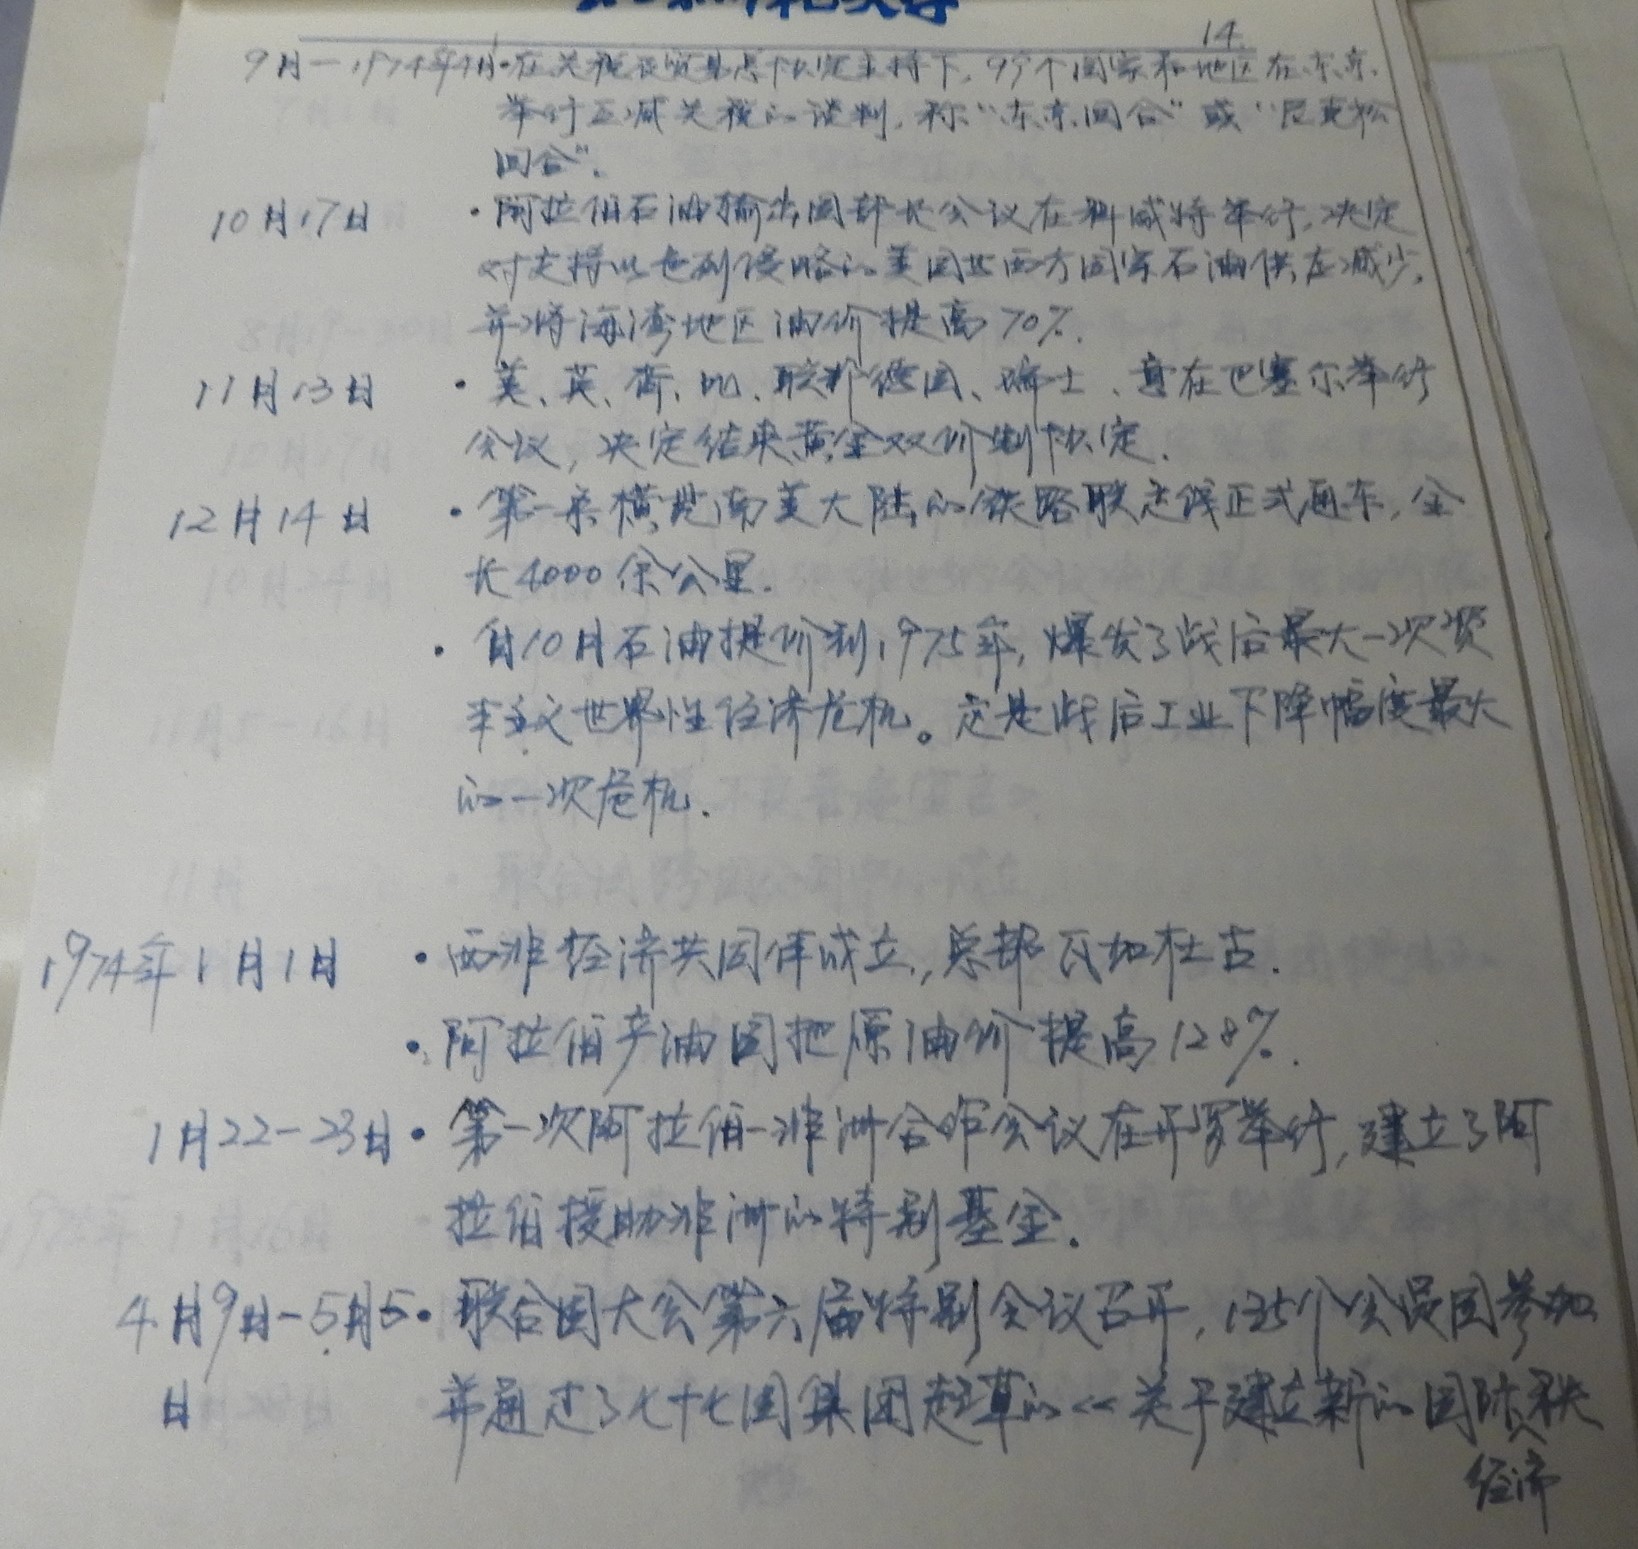 14.
9月—1974年4月·在关税及贸易总协定主持下,99个国家和地区在东京
举行互减关税的谈判,称"东京回合"或"尼克松
回合".
10月17日 ·阿拉伯石油输出国部长会议在科威特举行,决定
对支持以色列侵略的美国及西方国家石油供应减少,
并将海湾地区油价提高70%.
11月13日 ·美、英、荷、比、联邦德国、瑞士、意在巴塞尔举行
会议,决定结束黄金双价制协定.
12月14日 ·第一条横贯南美大陆的铁路联运线正式通车,全
长4000余公里.
·自10月石油提价到1975年,爆发了战后最大一次资
本主义世界性经济危机。这是战后工业下降幅度最大
的一次危机.
1974年1月1日 ·西非经济共同体成立,总部瓦加杜古.
·阿拉伯产油国把原油价提高128%.
1月22-23日·第一次阿拉伯-非洲合作会议在开罗举行,建立了阿
拉伯援助非洲的特别基金.
4月9日-5月5·联合国大会第六届特别会议召开,135个会员国参加
日 并通过了七十七国集团起草的《关于建立新的国际秩
经济